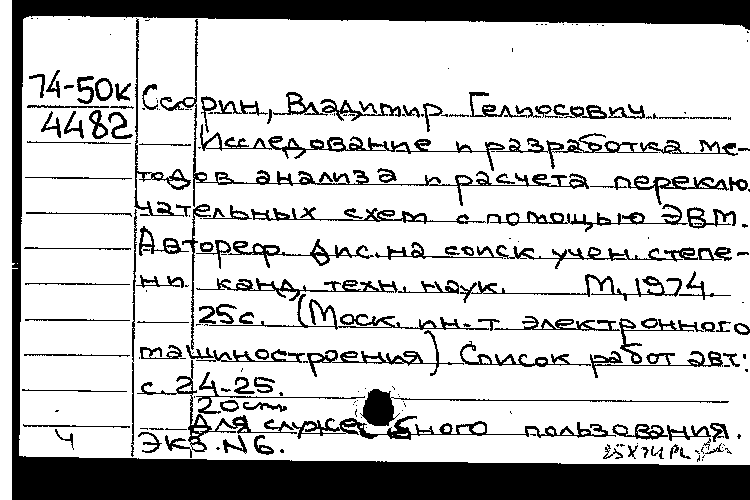 74-50к
4482
Ссорин, Владимир Гелиосович.
Исследование и разработка ме-
тодов анализа и расчета переклю
чательных схем с помощью ЭВМ.
Автореф. дис. на соиск. учен. степе-
ни канд. техн. наук. М., 1974.
25с. (Моск. ин-т электронного
машиностроения). Список работ авт.:
с. 24-25.
20см
Для служебного пользования.
ч ЭКЗ. N6.